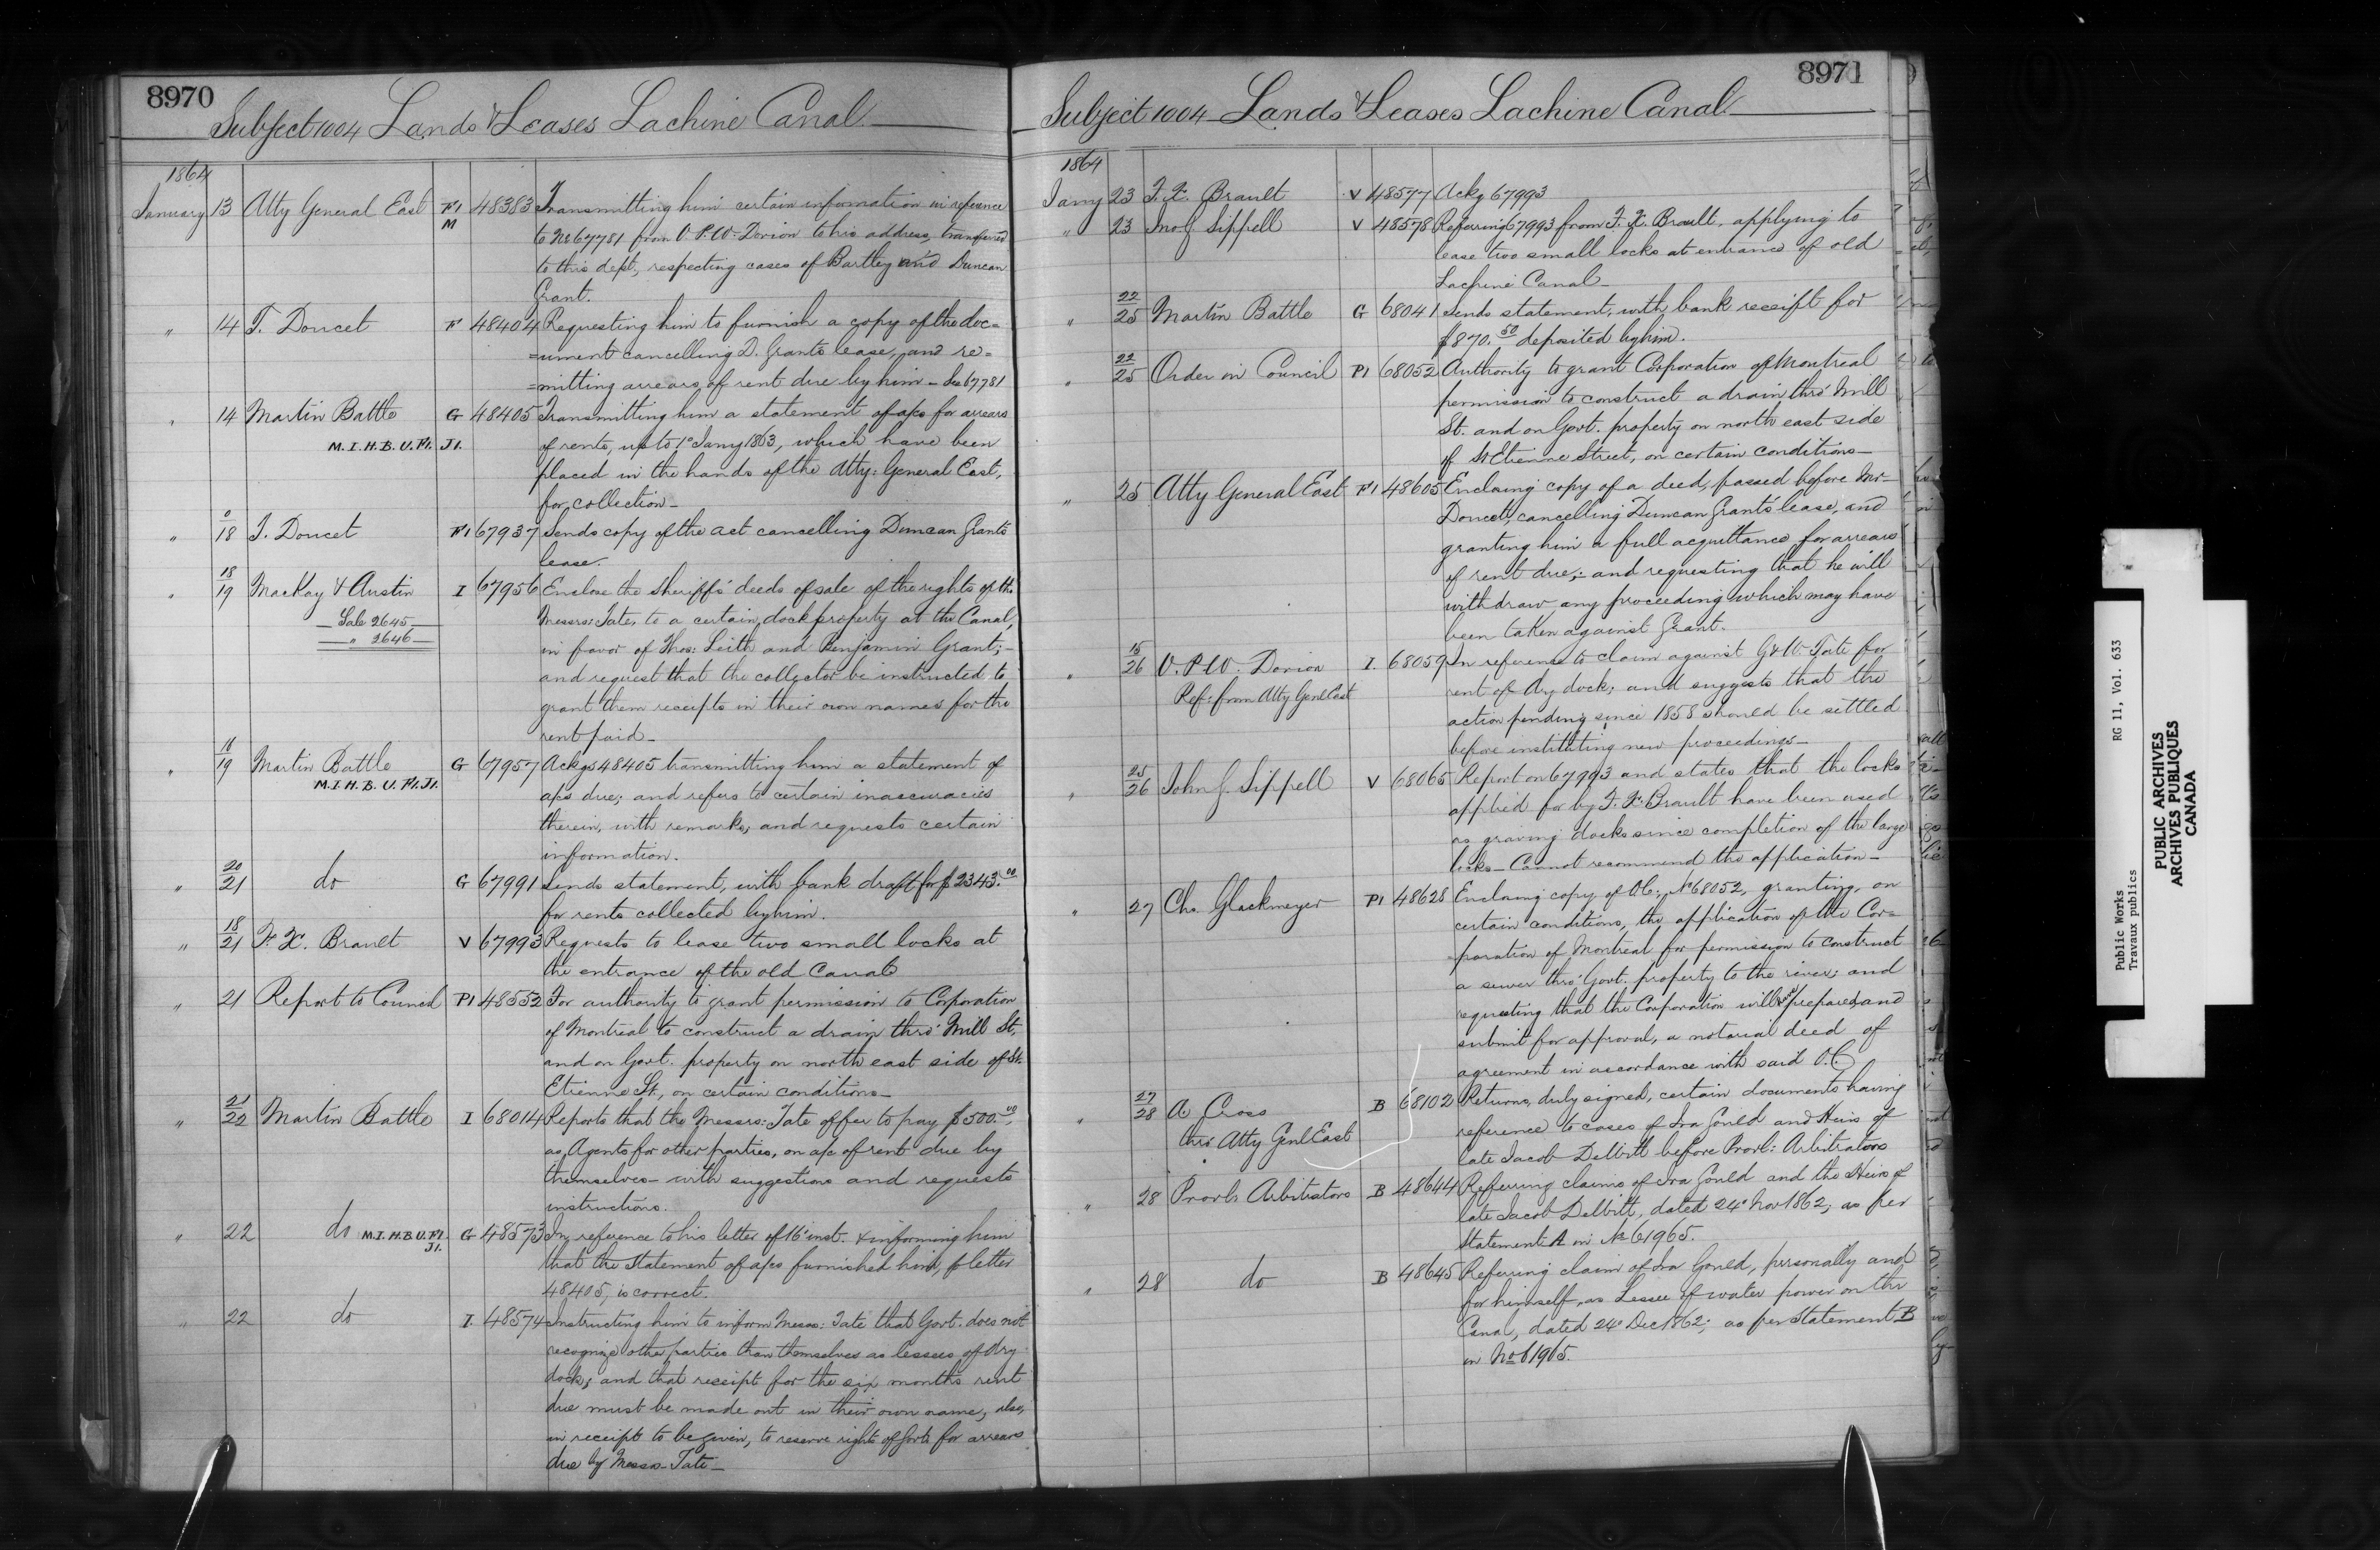 8970
Subject 1004 Lands & Leases Lachine Canal
1864
January 13 Atty General East F1 48383 Transmitting him certain information in reference
M to No 67781 from V. P. W. Dorion to his address, transferred
to this dept, respecting cases of Bartley and Duncan
Grant.
" 14 T. Doucet F 48404 Requesting him to furnish a copy of the doc=
=ument cancelling D. Grants lease, and re=
=mitting arrears of rent due by him - See 67781
" 14 Martin Battle G 48405 Transmitting him a statement of a/cs for arrears
M. I. H. B. U. P1. J1. of rents, up to 1° Jany 1863, which have been
placed in the hands of the Atty: General East,
for collection -
" 18 T. Doucet F1 67937 Sends copy of the act cancelling Duncan Grants
lease.
" 18/19 MacKay & Austin I 67956 Enclose the Sheriff's deeds of sale of the rights of the
Sale 2645 Messrs: Tate, to a certain dock property at the Canal,
" 2646 in favor of Thos: Leith and Benjamin Grant; -
and request that the collector be instructed to
grant them receipts in their own names for the
rent paid -
" 18/19 Martin Battle G 67957 Ackgs 48405 transmitting him a statement of
M. I. H. B. U. P1. J1. a/cs due; and refers to certain inaccuracies
therein, with remarks, and requests certain
information.
" 20/21 do G 67991 Sends statement, with bank draft for $2343.00
for rents collected by him.
" 18/21 F. X. Brault V 67993 Requests to lease two small locks at
the entrance of the old Canal
" 21 Report to Council P1 48552 For authority to grant permission to Corporation
of Montreal to construct a drain thro' Mill St,
and on Govt. property on north east side of St.
Etienne St., on certain conditions -
" 21/22 Martin Battle I 68014 Reports that the Messrs: Tate offer to pay $500.00,
as Agents for other parties, on a/c of rent due by
themselves - with suggestions and requests
instructions.
" 22 do M. I. H. B U. P1. J1. G 48573 In reference to his letter of 16 inst. & informing him
that the statement of a/cs furnished him, p letter
48405, is correct.
" 22 do I. 48574 Instructing him to inform Messrs: Tate that Govt. does not
recognize other parties than themselves as lessees of dry
dock, and that receipt for the six months rent
due must be made out in their own name, also,
in receipt to be given, to reserve right of Govt. for arrears
due by Messrs Tate -
8971
Subject 1004 Lands & Leases Lachine Canal
1864
Jany 23 F. X. Brault V 48577 Ackg 67993
" 23 Jno G Sippell V 48578 Referring 67993 from F. X. Brault, applying to
lease two small locks at entrance of old
Lachine Canal -
" 22/25 Martin Battle G 68041 Sends statement, with bank receipt for
$870.50 deposited by him.
" 22/25 Order in Council P1 68052 Authority to grant Corporation of Montreal
permission to construct a drain thro' Mill
St. and on Govt. property on north east side
of St Etienne Street, on certain conditions -
" 25 Atty General East F1 48605 Enclosing copy of a deed, passed before Mr -
Doucet, cancelling Duncan Grant's lease, and
granting him a full acquittance for arrears
of rent due; - and requesting that he will
withdraw any proceeding which may have
been taken against Grant.
" 15/26 V. P. W. Dorion I. 68059 In reference to claim against G & W Tate for
Ref: from Atty Genl East rent of dry dock; and suggests that the
action pending since 1858 should be settled
before instituting new proceedings -
" 25/26 John G. Sippell V 68065 Report on 67993 and states that the locks
applied for by F. X. Brault have been used
as graving docks since completion of the large
locks - Cannot recommend the application -
" 27 Chs. Glackmeyer P1 48628 Enclosing copy of O.C. No 68052, granting, on
certain conditions, the application of the Cor=
=poration of Montreal for permission to construct
a sewer thro' Govt. property to the river; and
requesting that the Corporation will prepare, and
submit for approval, a notarial deed of
agreement in accordance with said O.C.
" 27/28 A Cross B 68102 Returns, duly signed, certain documents having
thro. Atty Genl East reference to cases of Ira Gould and Heirs of
late Jacob DeWitt before Provl: Arbitrators
" 28 Provl. Arbitrators B 48644 Referring claims of Ira Gould and the Heirs of
late Jacob DeWitt, dated 24° Nov 1862, as per
Statement A in No 61965.
" 28 do B 48645 Referring claim of Ira Gould, personally and
for himself, as Lessee of water power on the
Canal, dated 24° Dec 1862; as per Statement B
in No 61965.
Public Works RG 11, Vol. 633
Travaux publics
PUBLIC ARCHIVES
ARCHIVES PUBLIQUES
CANADA